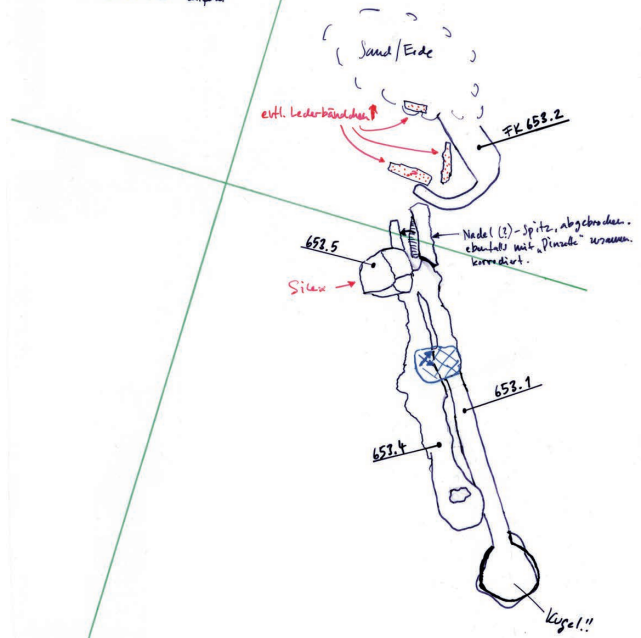 Sand/Erde
evtl. Lederbändchen
FK 653.2
Nadel (?)-Spitz, abgebrochen.
ebenfalls mit „Pinzette" zusammen
korrodiert.
653.5
Silex
653.1
653.4
Kugel!!